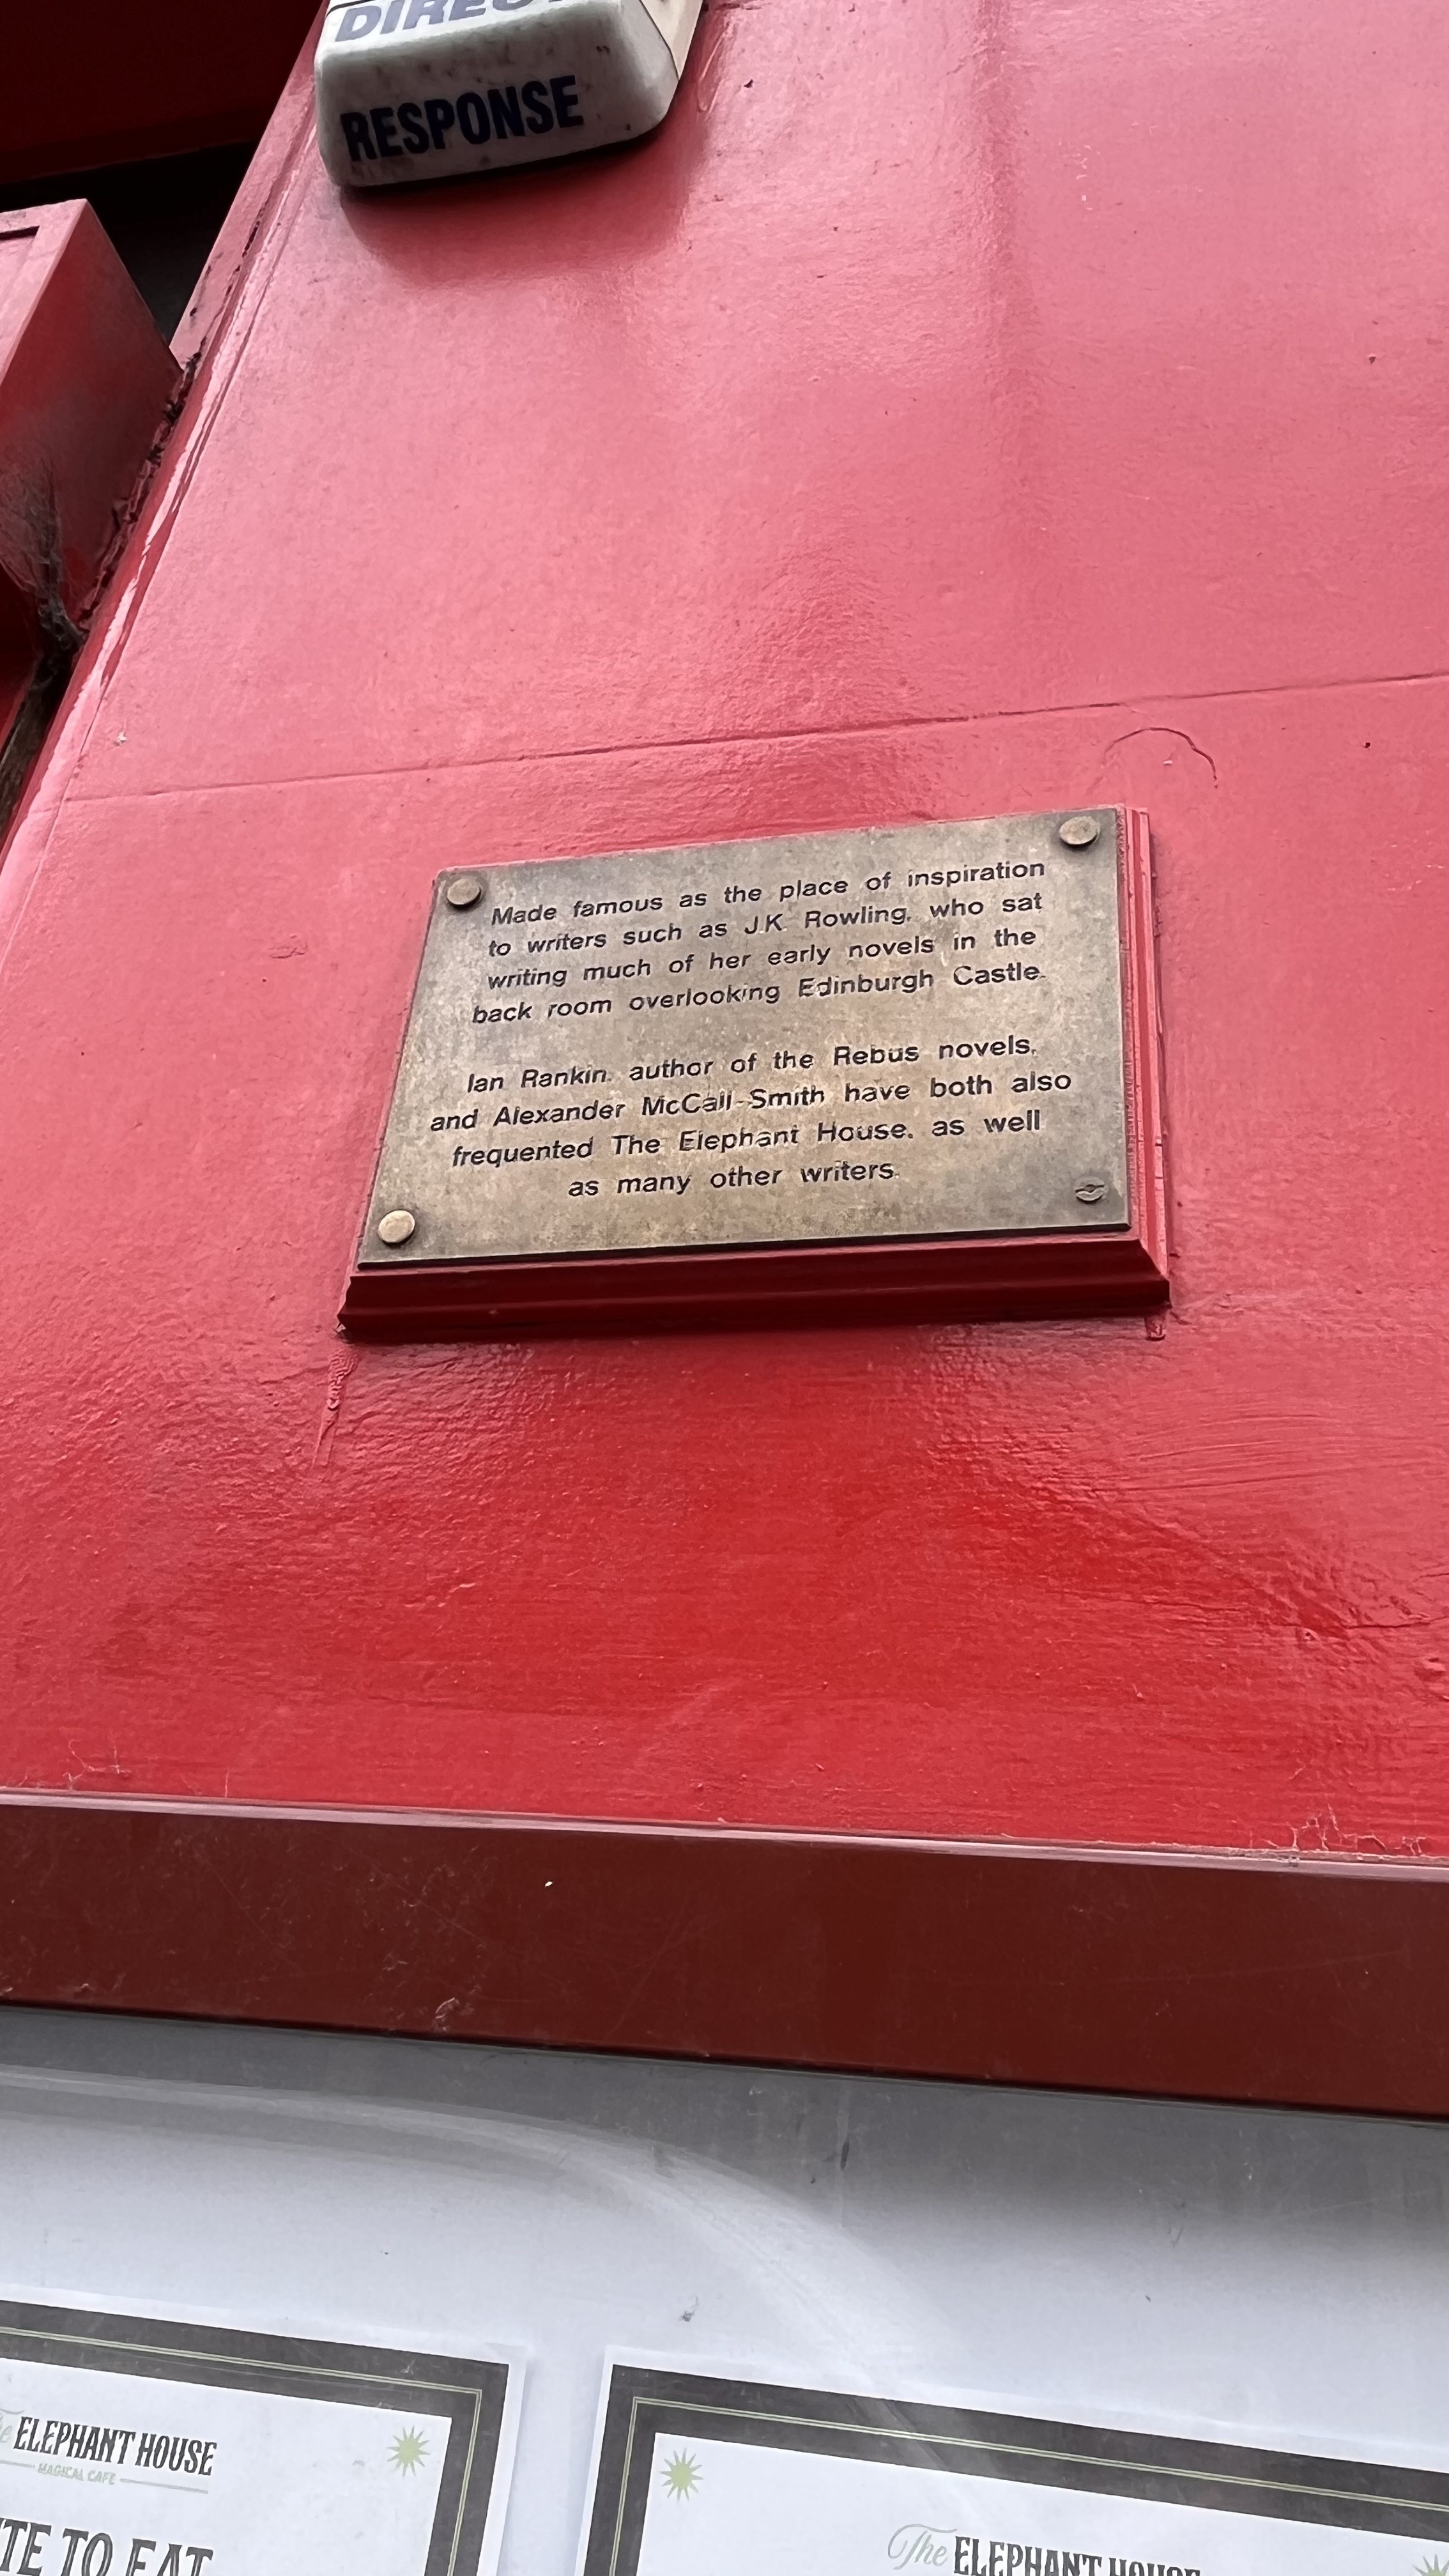 RESPONSE
Made famous as the place of inspiration
to writers such as J.K. Rowling, who sat
writing much of her early novels in the
back room overlooking Edinburgh Castle.
Ian Rankin, author of the Rebus novels,
and Alexander McCall-Smith have both also
frequented The Elephant House, as well
as many other writers.
ELEPHANT HOUSE
MAGICAL CAFE
TO EAT
The ELEPHANT HOUSE